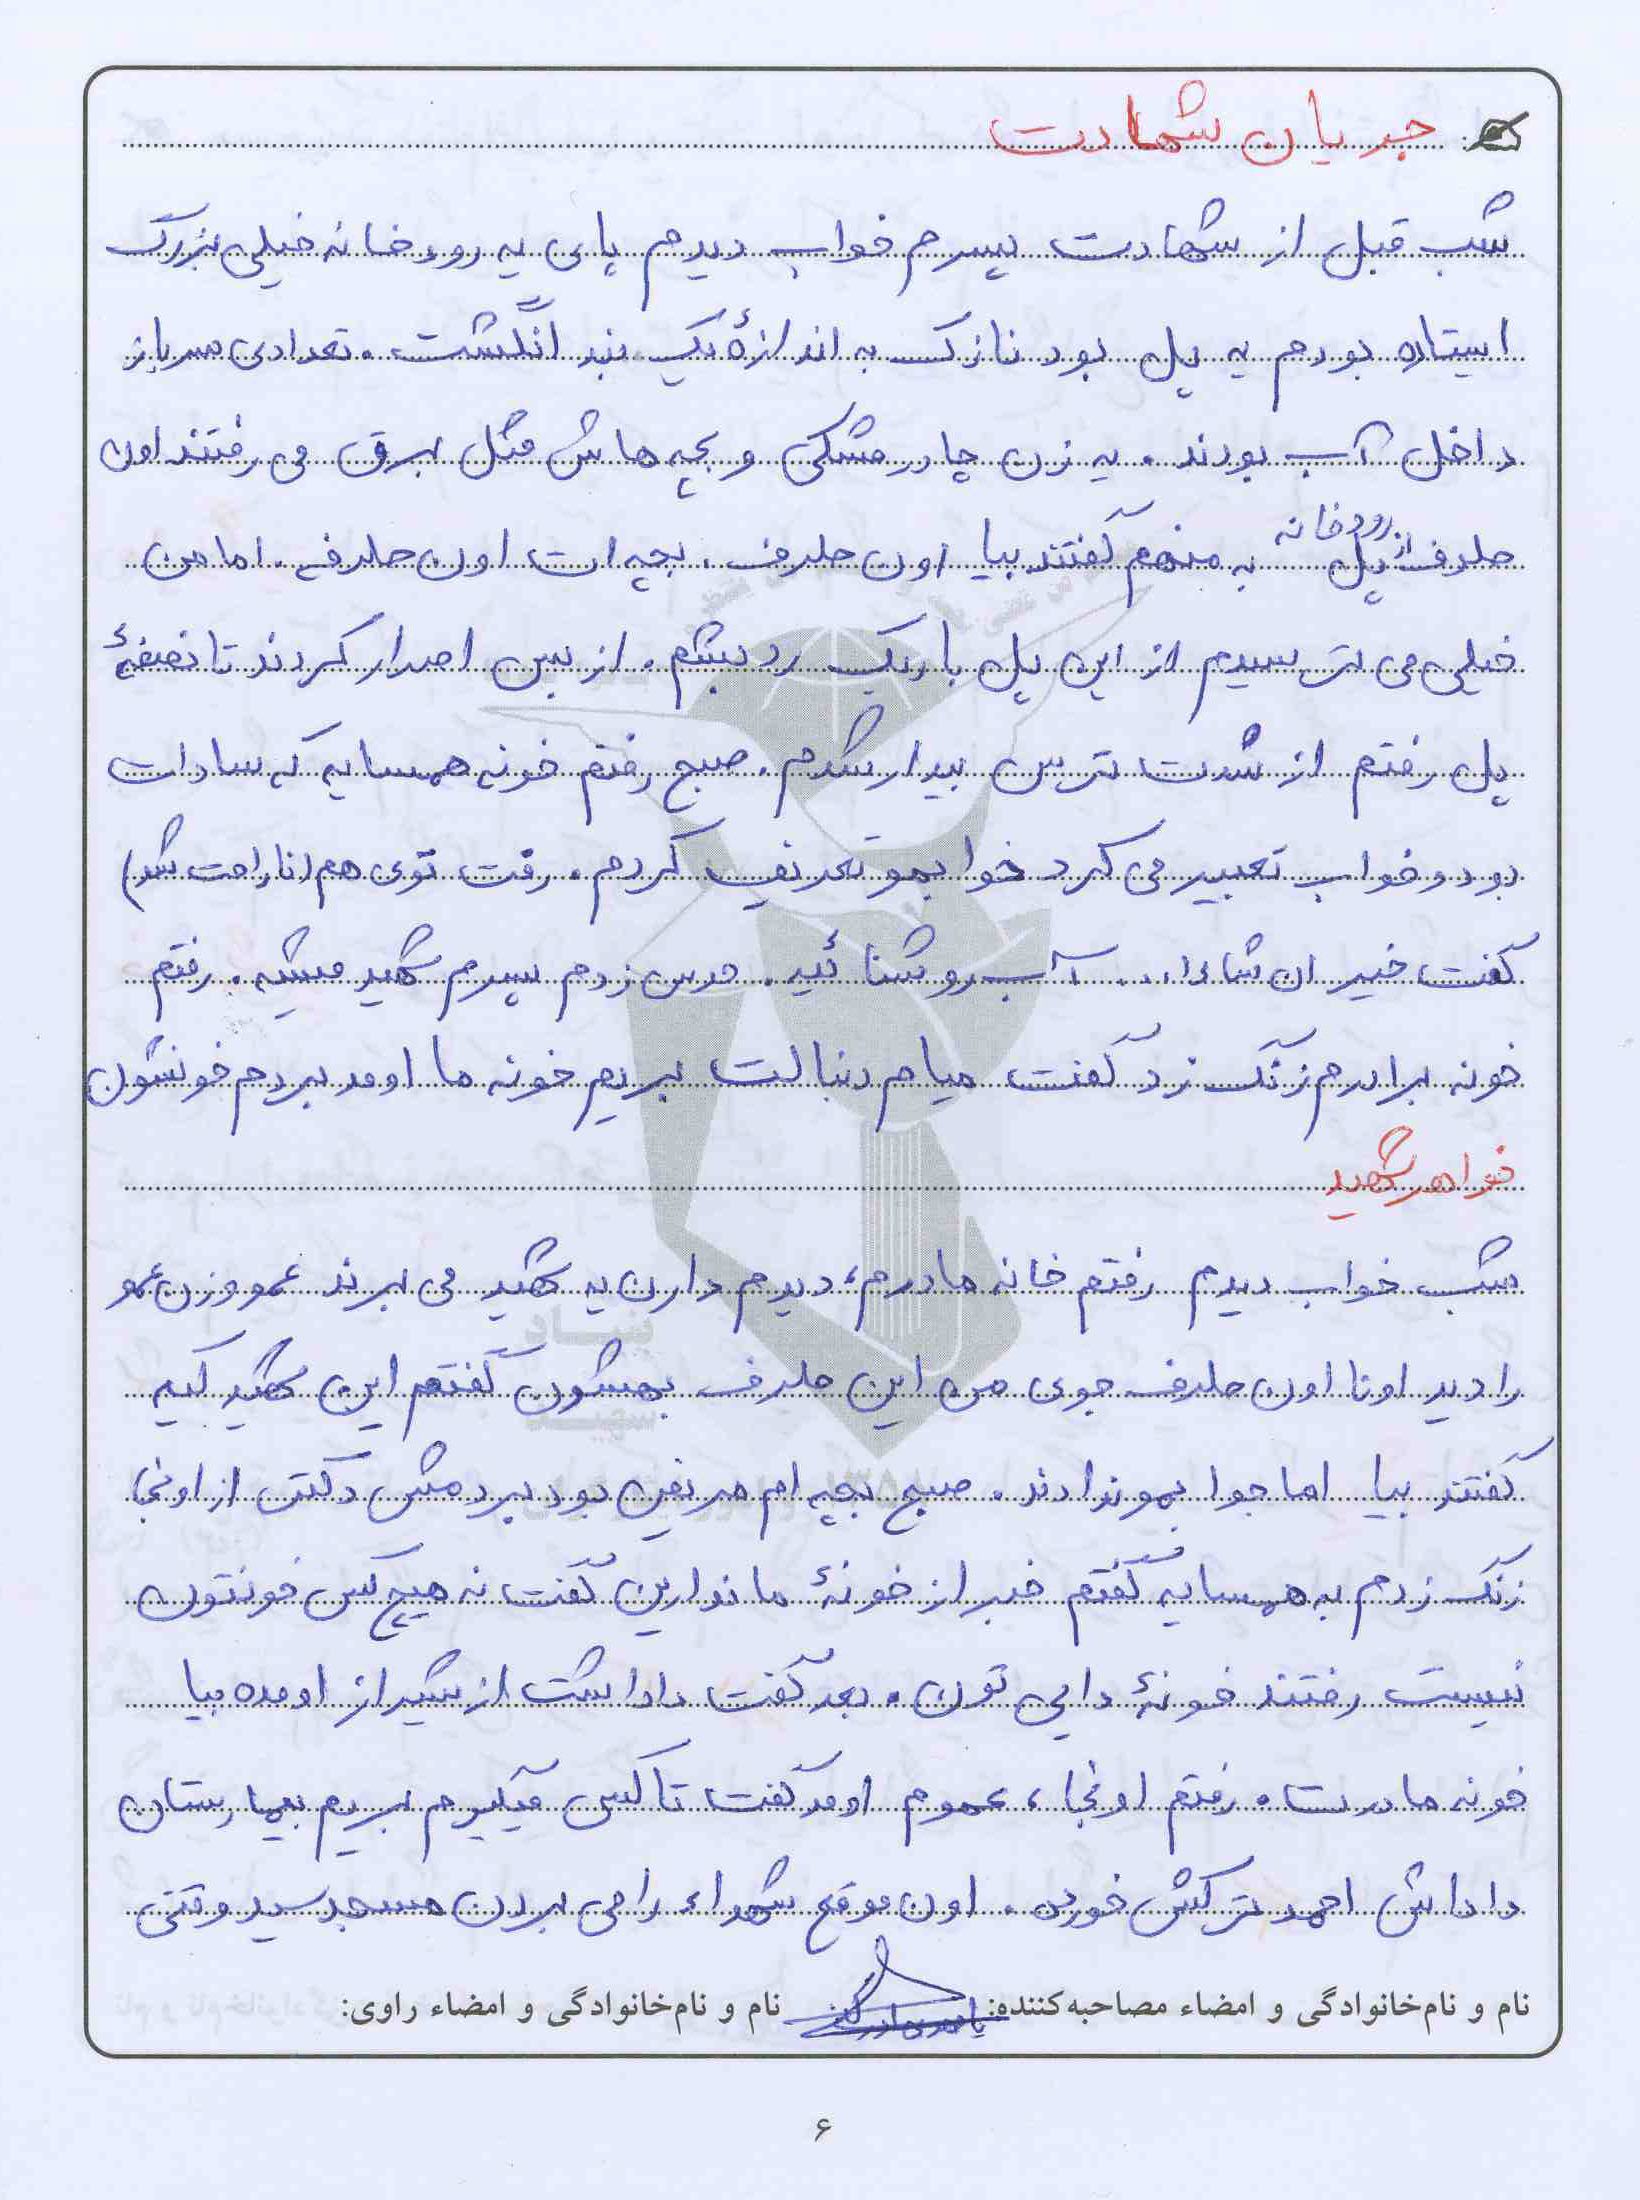 جریان شهادت
شب قبل از شهادت پسرم خواب دیدم پای یه رودخانه خیلی بزرگ
ایستاده بودم یه پل بود نازک به اندازهٔ یک بند انگشت. تعدادی سرباز
داخل آب بودند. یه زن چادر مشکی و بچه هاش مثل برق می رفتند اون
طرف پل از رودخانه به منهم گفتند بیا اون طرف. بچه ات اون طرفه. اما من
خیلی می ترسیدم از این پل باریک رد بشم. از بس اصرار کردند تا نصفهٔ
پل رفتم از شدت ترس بیدار شدم. صبح رفتم خونه همسایه که سادات
بود و خواب تعبیر می کرد خوابمو تعریف کردم. رفت توی هم (ناراحت شد)
گفت خیر ان شاءا... آب روشنائیه. حدس زدم پسرم شهید میشه. رفتم
خونه برادرم زنگ زد گفت میام دنبالت بریم خونه ما اومد بردم خونشون
خواهر شهید
شب خواب دیدم رفتم خانه مادرم، دیدم دارن یه شهید می برند عمو و زن عمو
را دید اونا اون طرف جوی من این طرف بهشون گفتم این شهید کیه
گفتند بیا اما جوابمو ندادند. صبح بچه ام مریض بود بردمش دکتر از اونجا
زنگ زدم به همسایه گفتم خبر از خونهٔ ما ندارین گفت نه هیچ کس خونتون
نیست رفتند خونهٔ دایی تون. بعد گفت داداشت از شیراز اومده بیا
خونه مادرت. رفتم اونجا، عموم اومد گفت تاکسی میگیرم بریم بیمارستان
داداش احمد ترکش خورده. اون موقع شهداء را می بردن مسجد سید وقتی
نام و نام‌خانوادگی و امضاء مصاحبه‌کننده: نام و نام‌خانوادگی و امضاء راوی:
۶